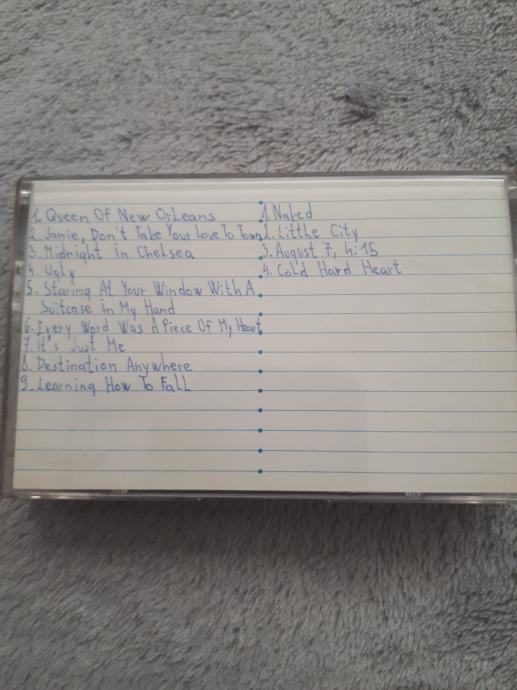 1. Queen Of New Orleans
2. Janie, Don't Take Your Love To Town
3. Midnight in Chelsea
4. Ugly
5. Staring At Your Window With A
Suitcase in My Hand
6. Every Word Was A Piece Of My Heart
7. It's Just Me
8. Destination Anywhere
9. Learning How To Fall
1. Naked
2. Little City
3. August 7, 4:15
4. Cold Hard Heart